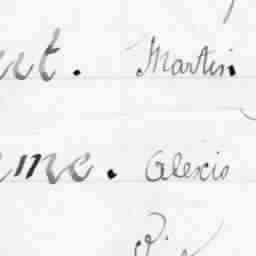 ut. Martin
me. Alexis